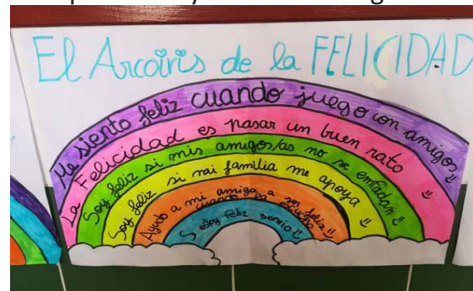 El Arcoiris de la FELICIDAD
Me siento feliz cuando juego con amigos
La Felicidad es pasar un buen rato
Soy feliz si mis amigos/as no se enfadan
Soy feliz si mi familia me apoya
Ayudo a mi amiga a ser feliz
cuando